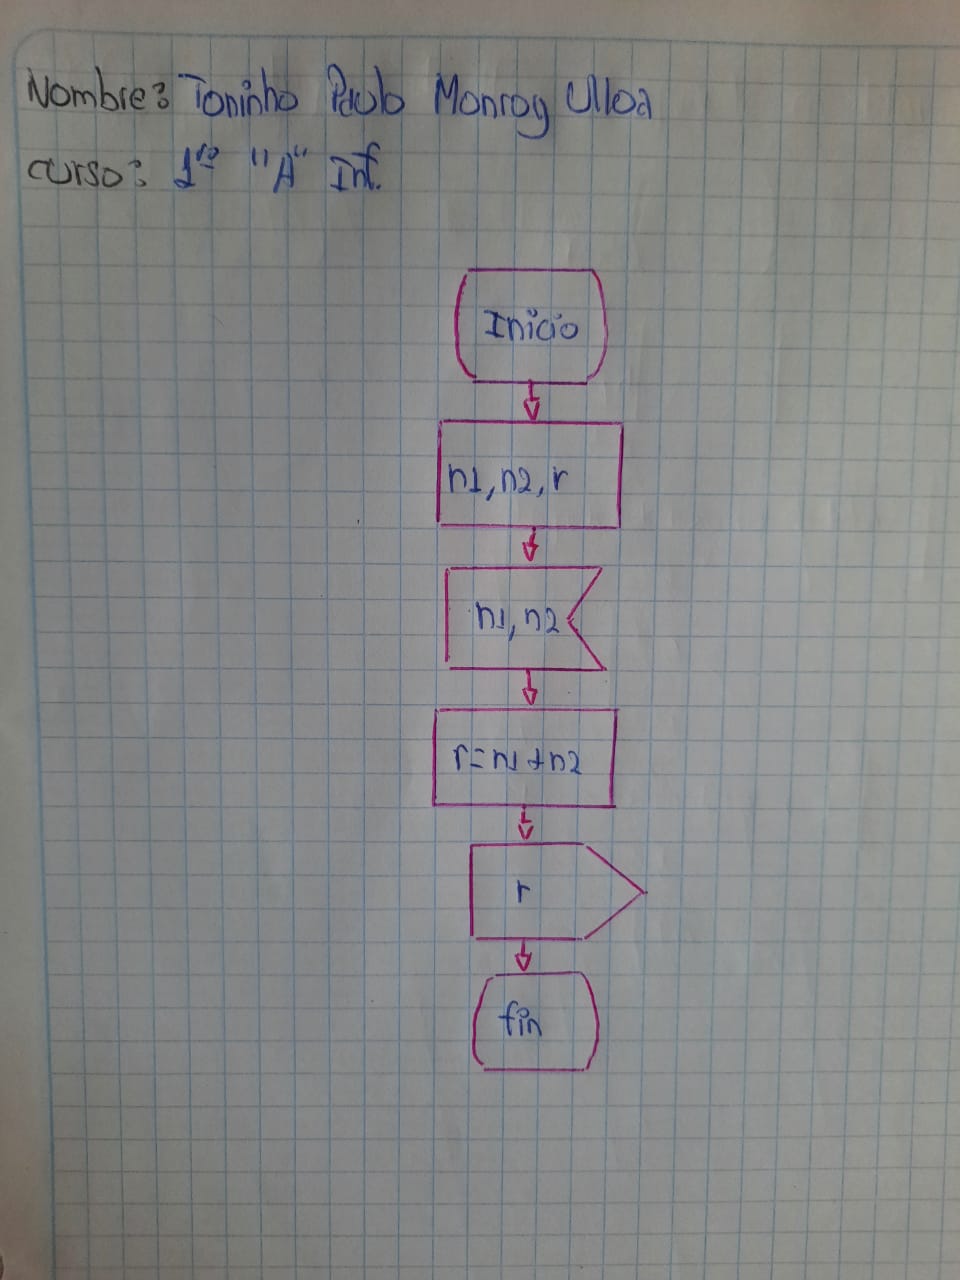 Nombre: Toninho Paulo Monroy Ulloa
curso: 1ro "A" Inf.
Inicio
n1, n2, r
n1, n2
r=n1+n2
r
fin